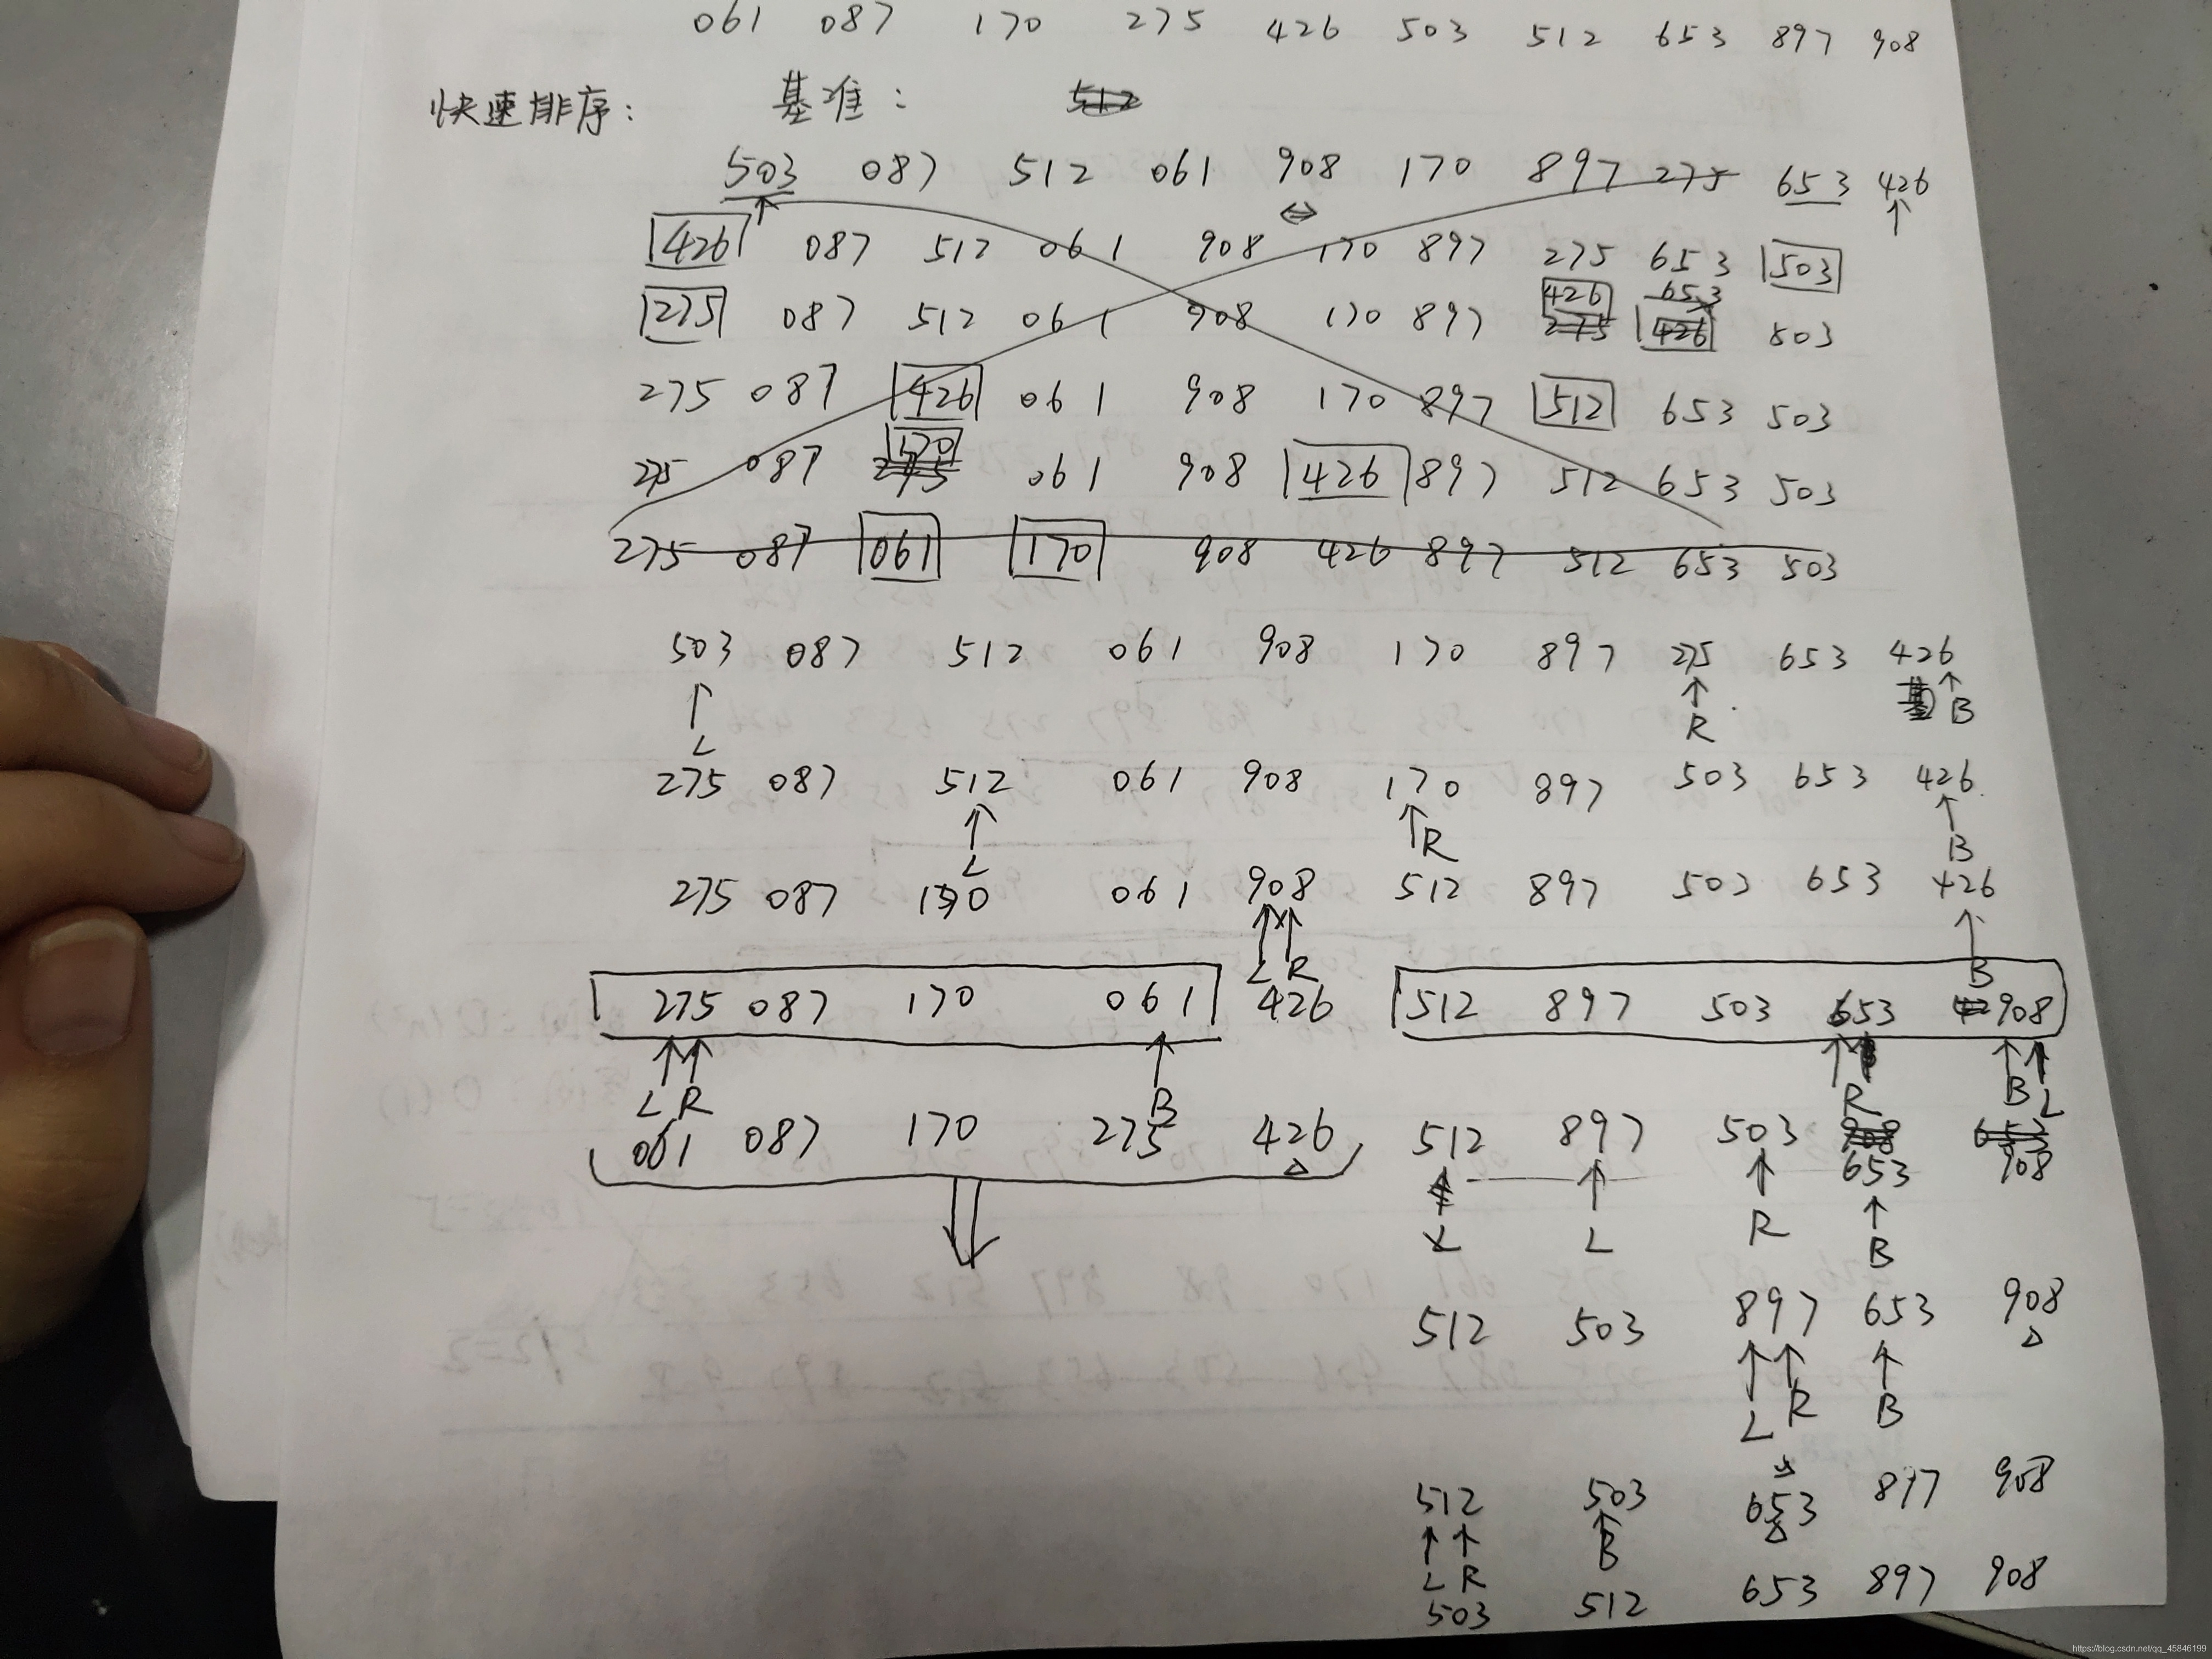 061 087 170 275 426 503 512 653 897 908
快速排序： 基准： 512
503 087 512 061 908 170 897 275 653 426
426 087 512 061 908 170 897 275 653 503
426 653
275 087 512 061 908 170 897 275 426 503
275 087 426 061 908 170 897 512 653 503
170
275 087 275 061 908 426 897 512 653 503
275 087 061 170 908 426 897 512 653 503
503 087 512 061 908 170 897 275 653 426
L R 基 B
275 087 512 061 908 170 897 503 653 426
L R B
275 087 170 061 908 512 897 503 653 426
L R B
275 087 170 061 426 512 897 503 653 908
L R B R B L
061 087 170 275 426 512 897 503 908 653
653 908
L L R B
512 503 897 653 908
L R B
512 503 653 897 908
L R B
503 512 653 897 908
https://blog.csdn.net/qq_45846199